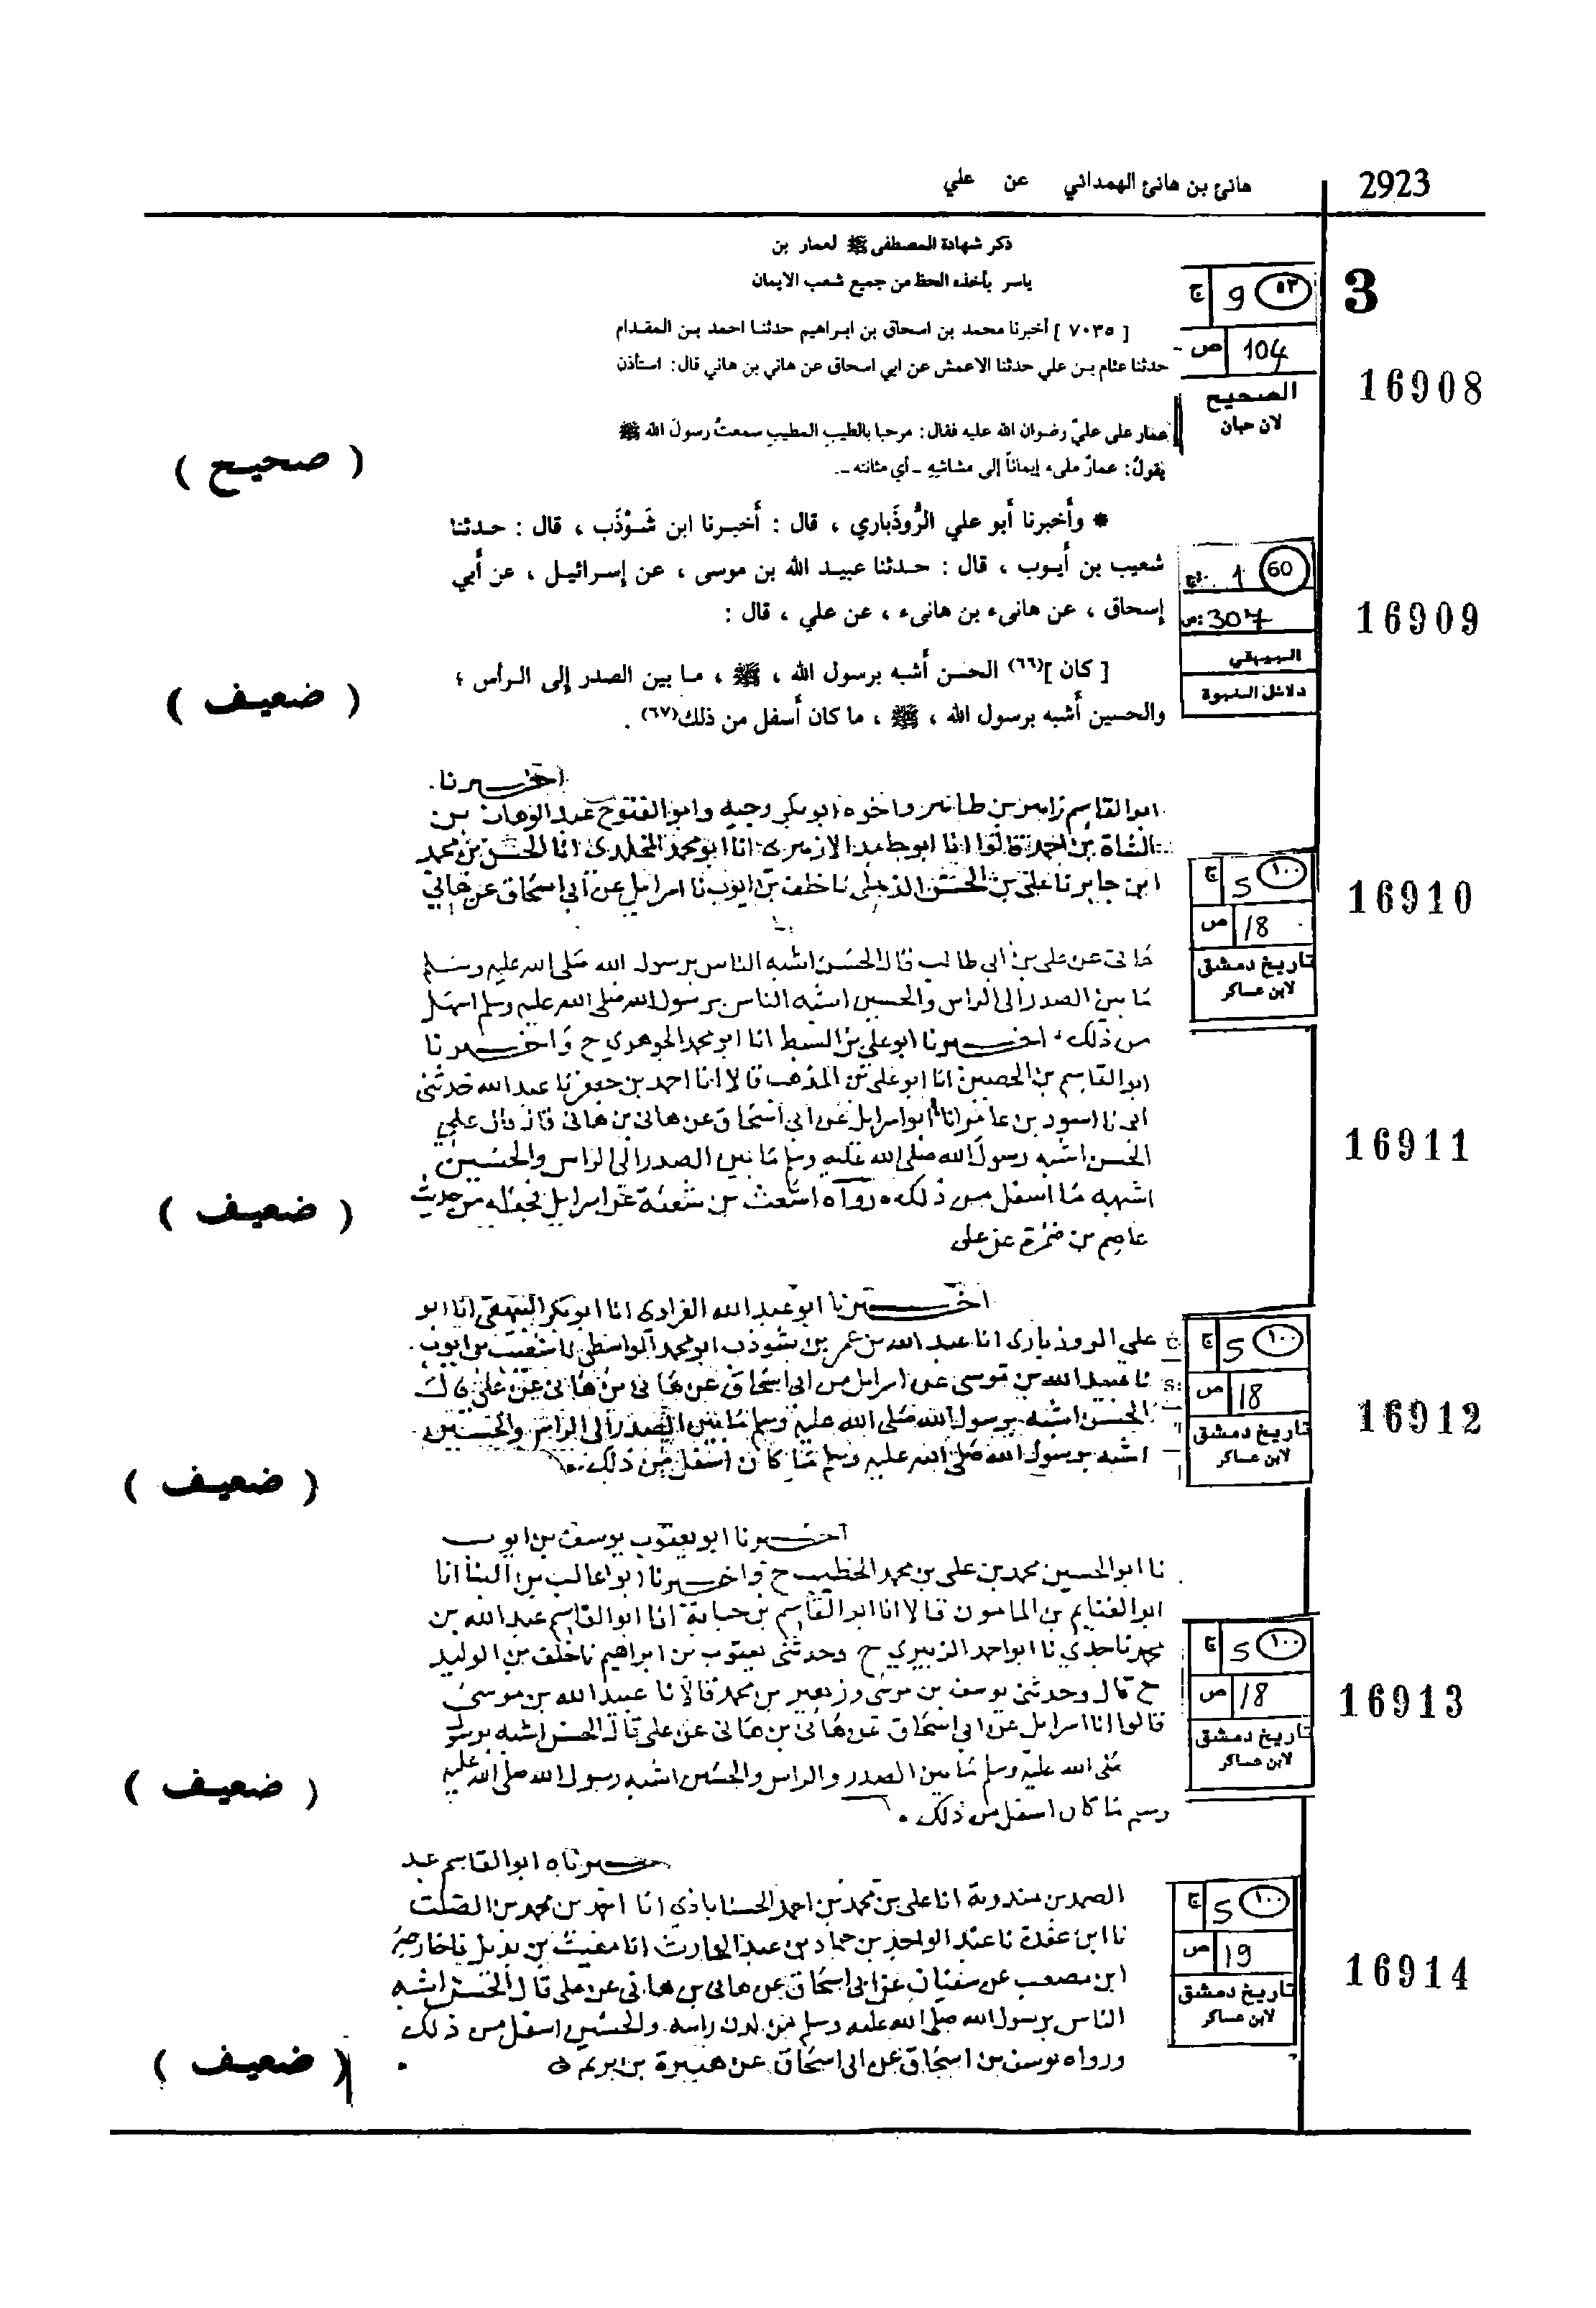 2923
هانئ بن هانئ الهمداني عن علي
ذكر شهادة المصطفى ﷺ لعمار بن
ياسر بأخذه الحظ من جميع شعب الايمان
3
ج 9 ٥٣
ص 104
الصحيح
لابن حبان
16908
[ ٧٠٣٥ ] أخبرنا محمد بن اسحاق بن ابراهيم حدثنا احمد بن المقدام
حدثنا عثام بن علي حدثنا الاعمش عن ابي اسحاق عن هاني بن هاني قال: استأذن
عمار على عليّ رضوان الله عليه فقال: مرحبا بالطيب المطيب سمعتُ رسولَ الله ﷺ
يقولُ: عمارٌ ملىء إيماناً إلى مشاشِهِ - أي مثانته -.
( صحيح )
* وأخبرنا أبو علي الرُّوذَباري ، قال : أخبرنا ابن شَوْذَب ، قال : حدثنا
شعيب بن أيوب ، قال : حدثنا عبيد الله بن موسى ، عن إسرائيل ، عن أبي
إسحاق ، عن هانىء بن هانىء ، عن علي ، قال :
ج 1 60
ص: 307
البيهقي
دلائل النبوة
16909
[ كان ](٦٦) الحسن أشبه برسول الله ، ﷺ ، ما بين الصدر إلى الرأس ؛
والحسين أشبه برسول الله ، ﷺ ، ما كان أسفل من ذلك(٦٧) .
( ضعيف )
اخبرنا
ابوالقاسم زاهر بن طاهر واخوه ابوبكر وجيه وابوالفتوح عبدالوهاب بن
الشاه بن احمد قالوا انا ابوحامد الازهري انا ابومحمد المخلدي انا الحسن بن محمد
ابن جابر نا علي بن الحسن الذهلي نا خلف بن ايوب نا اسرايل عن ابي اسحاق عن هاني
ج 5 ١٠٠
ص 18
تاريخ دمشق
لابن عساكر
16910
هاني عن علي بن ابي طالب قال الحسن اشبه الناس برسول الله صلى الله عليه وسلم
ما بين الصدر الى الراس والحسين اشبه الناس برسول الله صلى الله عليه وسلم اسفل
من ذلك اخبرنا ابوعلي بن السبط انا ابومحمد الجوهري ح واخبرنا
ابوالقاسم بن الحصين انا ابوعلي بن المذهب قالا انا احمد بن جعفر نا عبدالله حدثني
ابي نا اسود بن عامر انا ابواسرايل عن ابي اسحاق عن هاني بن هاني قال قال علي
الحسن اشبه رسول الله صلى الله عليه وسلم ما بين الصدر الى الراس والحسين
اشبه ما اسفل من ذلك رواه اشعث بن شعبة عن اسرايل فجعله من حديث
عاصم بن ضمرة عن علي
16911
( ضعيف )
اخبرنا ابوعبدالله الفراوي انا ابوبكر البيهقي انا ابو
علي الروذباري انا عبدالله بن عمر بن شوذب ابومحمد الواسطي نا شعيب بن ايوب
نا عبيدالله بن موسى عن اسرايل عن ابي اسحاق عن هاني بن هاني عن علي قال
الحسن اشبه برسول الله صلى الله عليه وسلم ما بين الصدر الى الراس والحسين
اشبه برسول الله صلى الله عليه وسلم ما كان اسفل من ذلك
ج 5 ١٠٠
ص 18
تاريخ دمشق
لابن عساكر
16912
( ضعيف )
اخبرنا ابويعقوب يوسف بن ايوب
نا ابوالحسين محمد بن علي بن محمد الخطيب ح واخبرنا ابوغالب بن البنا انا
ابوالغنايم بن المامون قالا انا ابوالقاسم بن حبابة انا ابوالقاسم عبدالله بن
محمد نا جدي نا ابواحمد الزبيري ح وحدثني يعقوب بن ابراهيم نا خلف بن الوليد
ح قال وحدثني يوسف بن موسى وزهير بن محمد قالا نا عبيدالله بن موسى
قالوا انا اسرايل عن ابي اسحاق عن هاني بن هاني عن علي قال الحسن اشبه برسول
صلى الله عليه وسلم ما بين الصدر والراس والحسين اشبه رسول الله صلى الله عليه
وسلم ما كان اسفل من ذلك .
ج 5 ١٠٠
ص 18
تاريخ دمشق
لابن عساكر
16913
( ضعيف )
اخبرناه ابوالقاسم عبد
الصمد بن مندوية انا علي بن محمد بن احمد الحسناباذي انا احمد بن محمد بن الصلت
نا ابن عقدة نا عبدالواحد بن حماد بن عبدالحارث انا مغيث بن بديل نا خارجة
ابن مصعب عن سفيان عن ابي اسحاق عن هاني بن هاني عن علي قال الحسن اشبه
الناس برسول الله صلى الله عليه وسلم من لدن راسه والحسين اسفل من ذلك
ورواه يوسف بن اسحاق عن ابي اسحاق عن هبيرة بن يريم
ج 5 ١٠٠
ص 19
تاريخ دمشق
لابن عساكر
16914
( ضعيف )